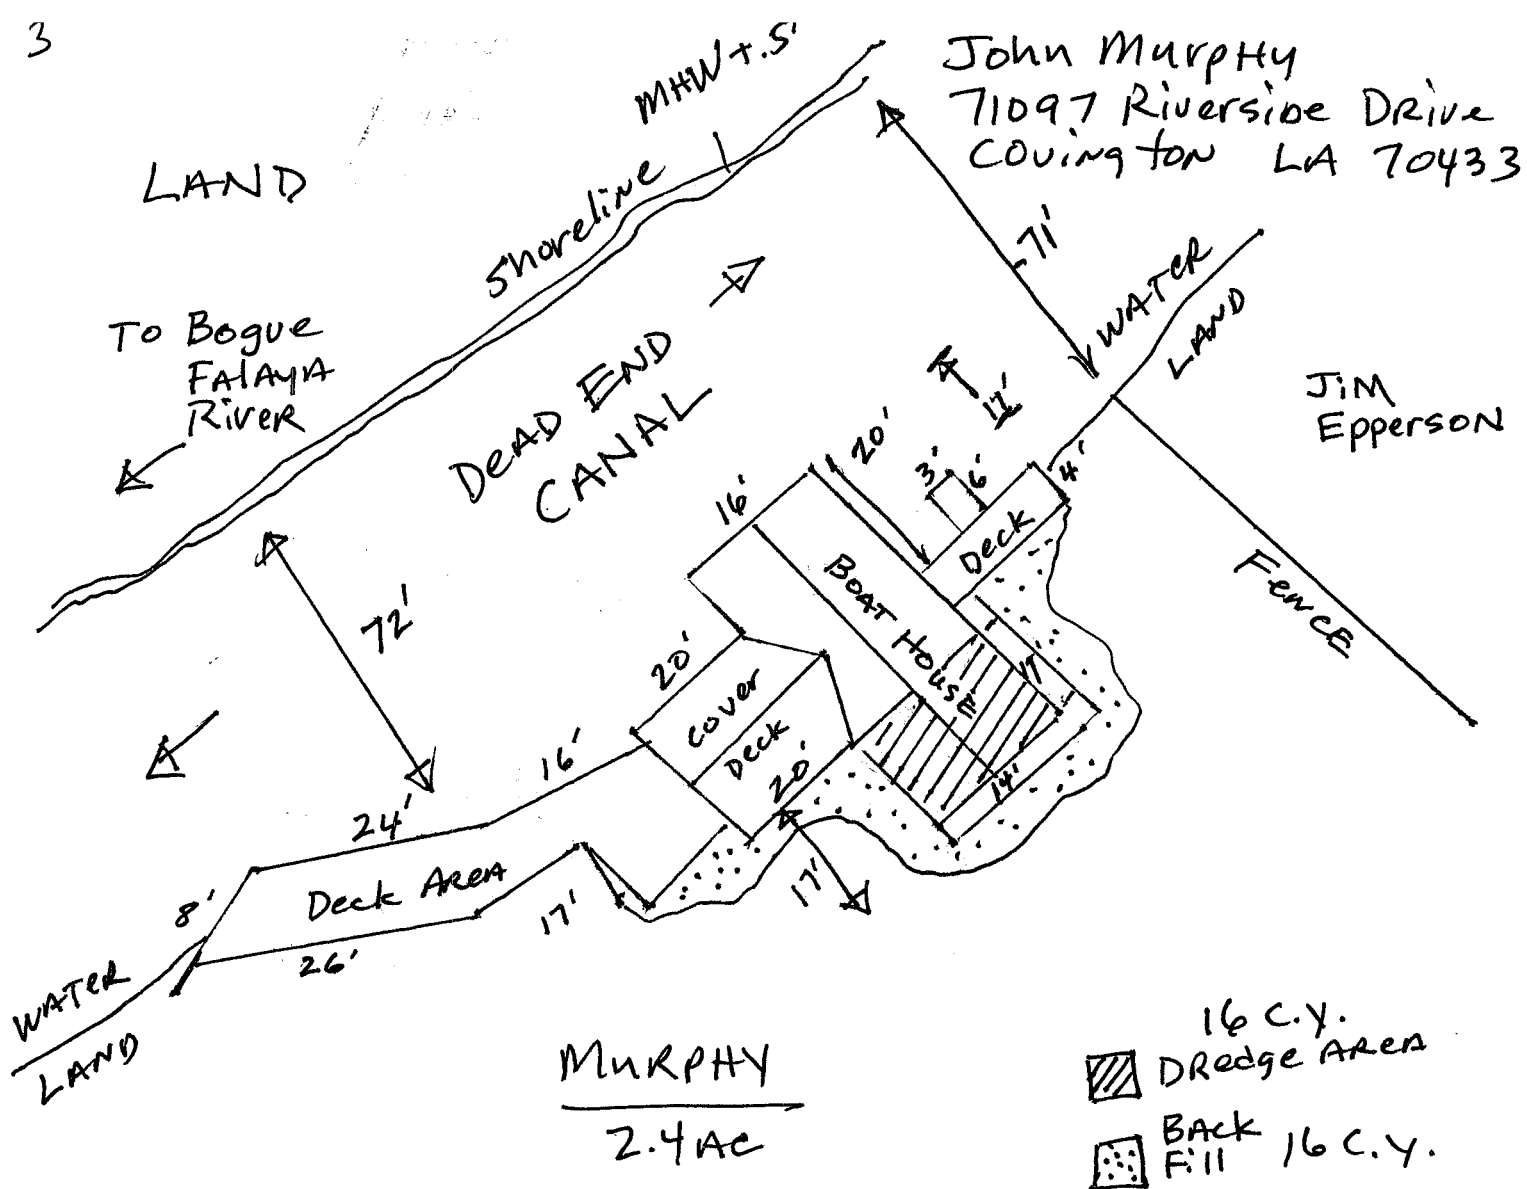 3
MHW +.5'
John Murphy
71097 Riverside Drive
Covington LA 70433
LAND
Shoreline
71'
WATER
LAND
To Bogue
Falaya
River
DEAD END
CANAL
Jim
Epperson
12'
20'
3'
6'
4'
16'
Deck
BOAT HOUSE
Fence
72'
20'
17'
Cover
Deck
16'
20'
14'
24'
Deck Area
8'
17'
17'
26'
WATER
LAND
MURPHY
2.4 AC
16 C.Y.
DRedge AREA
BACK
Fill
16 C.Y.